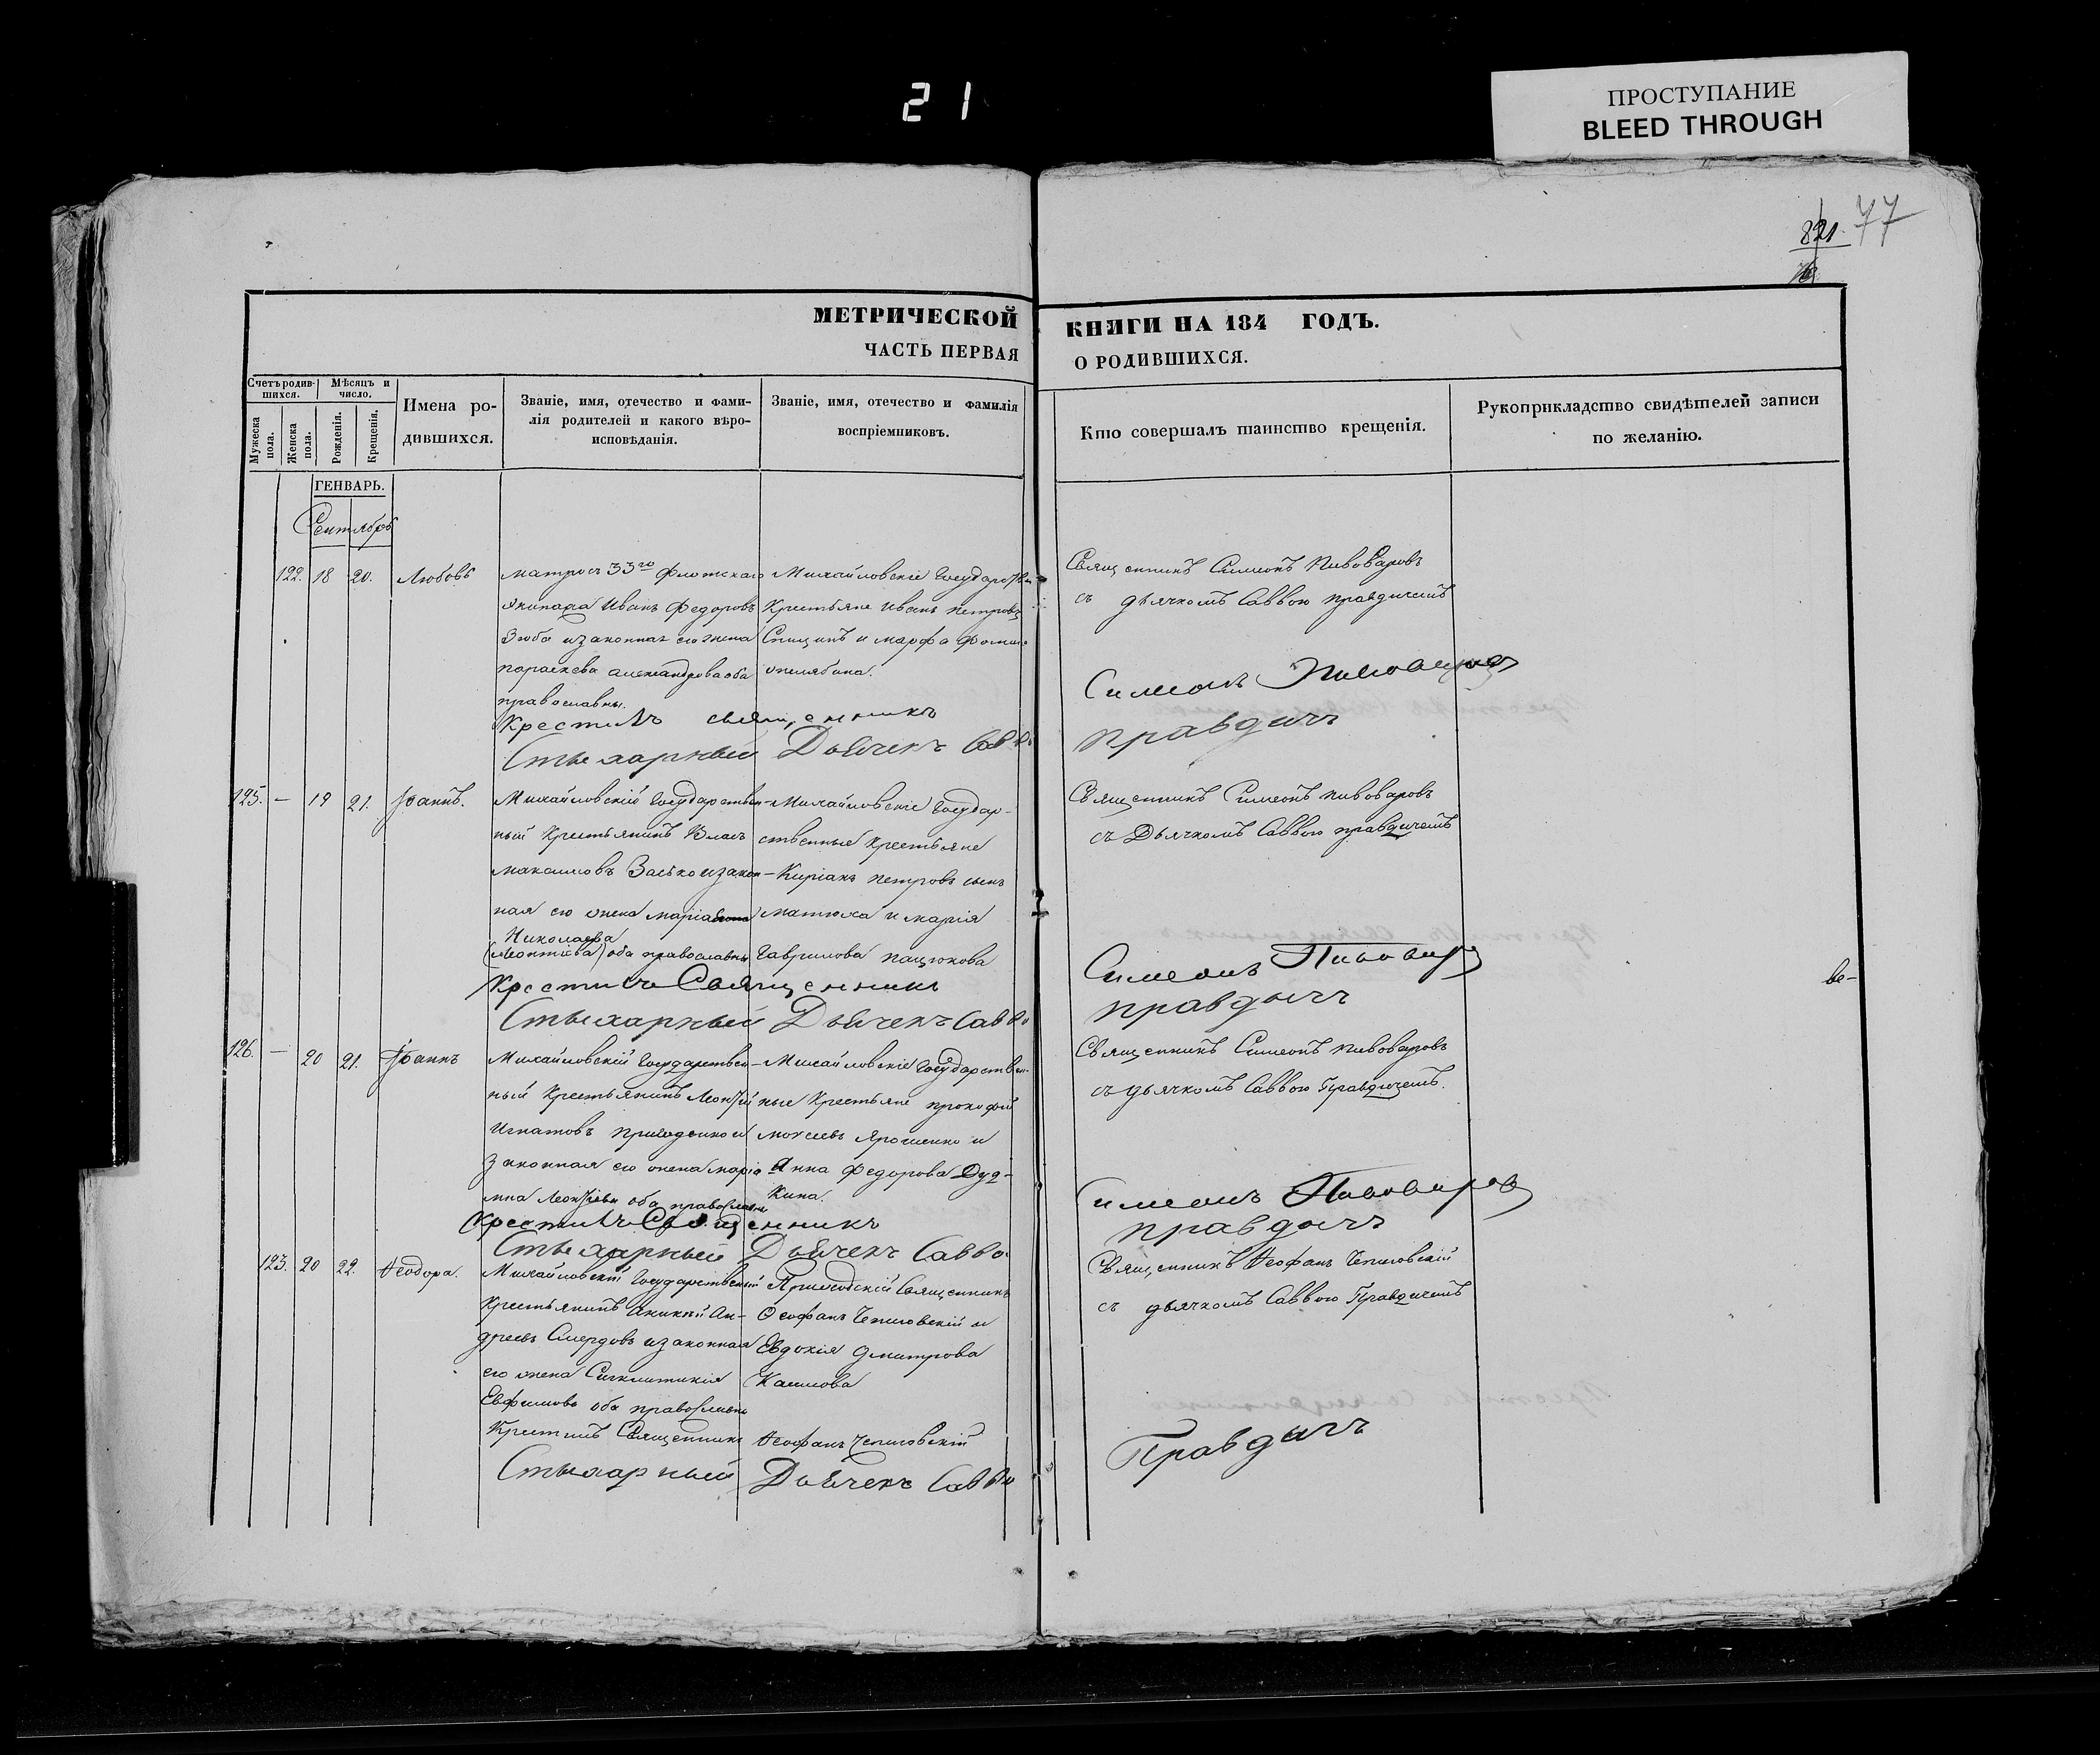 21
ПРОСТУПАНИЕ
BLEED THROUGH
821. 77
МЕТРИЧЕСКОЙ КНИГИ НА 184 ГОДЪ.
ЧАСТЬ ПЕРВАЯ О РОДИВШИХСЯ.
Счетъ родившихся.
Мужеска пола.
Женска пола.
Мѣсяцъ и число.
Рожденія.
Крещенія.
Имена родившихся.
Званіе, имя, отечество и фамилія родителей и какого вѣроисповѣданія.
Званіе, имя, отечество и фамилія воспріемниковъ.
Кто совершалъ таинство крещенія.
Рукоприкладство свидѣтелей записи по желанію.
ГЕНВАРЬ.
Сентябрь
122. 18 20. Любовь
матросъ 33го Флотскаго
экипажа Иванъ Федоровъ
Зюба и законная его жена
параскева александрова оба
православны.
Михайловскіе Государствен
Крестьяне Иванъ петровъ
Спицинъ и марфа
Священникъ Симеонъ Пивоваровъ
съ дьячкомъ Саввою правдичемъ
Крестилъ священникъ Симеонъ Пивоваровъ
Стыхарный Дьячекъ Савва правдичъ
125. — 19 21. Іоаннъ.
Михайловскій Государствен-
ный Крестьянинъ Власъ
максимовъ Заська и закон-
ная его жена марія
Николаева
(Леонтіева) оба православны
Михайловскіе Государ-
ственные Крестьяне
Киріакъ петровъ сынъ
матюха и марія
Гаврилова пацюкова
Священникъ Симеонъ пивоваровъ
съ Дьячкомъ Саввою правдичемъ
Крестилъ Священникъ Симеонъ Пивоваровъ
Стыхарный Дьячекъ Савва правдичъ
126. — 20 21. Іоаннъ
Михайловскій Государствен-
ный Крестьянинъ Леонтій
Игнатовъ Приходько и
законная его жена марія
Леонтіева оба православны
Михайловскіе Государствен-
ные Крестьяне прокофій
моисеевъ Ярошенко и
Анна Федорова Дуд-
кина.
Священникъ Симеонъ пивоваровъ
съ дьячкомъ Саввою Правдичемъ.
Крестилъ Священникъ Симеонъ Пивоваровъ
Стыхарный Дьячекъ Савва правдичъ
123. 20 22. Ѳеодора.
Михайловскій Государственный
Крестьянинъ Аникій Ан-
дреевъ Смердовъ и законная
его жена Сигклитикія
Евфимова оба православны
Приходскій Священникъ
Ѳеофанъ Чепиговскій и
Евдокія Дмитрова
Священникъ Ѳеофанъ Чепиговскій
съ дьячкомъ Саввою Правдичемъ
Крестилъ Священникъ Ѳеофанъ Чепиговскій
Стыхарный Дьячекъ Савва Правдичъ